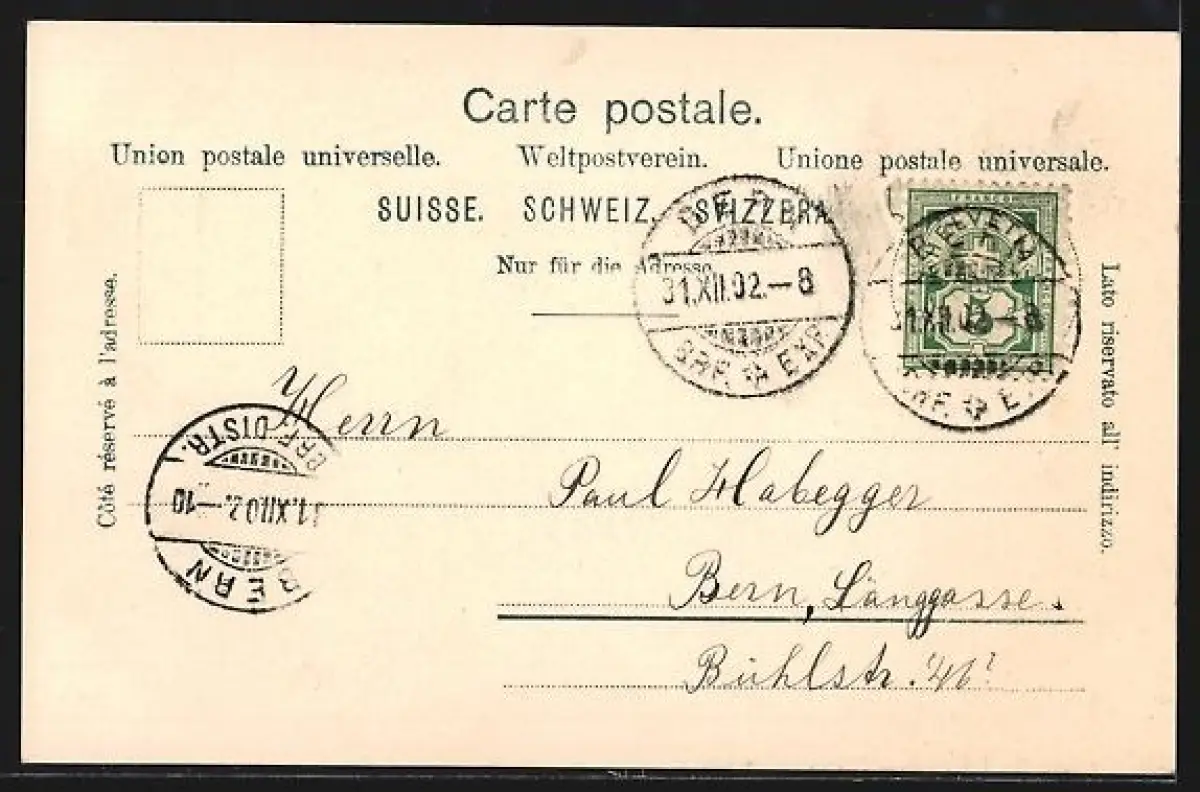 Carte postale.
Union postale universelle. Weltpostverein. Unione postale universale.
SUISSE. SCHWEIZ. SVIZZERA
Nur für die Adresse
Côté réservé à l'adresse.
Lato riservato all' indirizzo.
FRANCO
HELVETIA
5
BERN
31.XII.02.—8
BRF. EXP.
BERN
31.XII.02.—8
BRF. EXP.
BRF. DISTR.
31.XII.02.—10
BERN
Herrn
Paul Habegger
Bern, Länggasse.
Bühlstr.